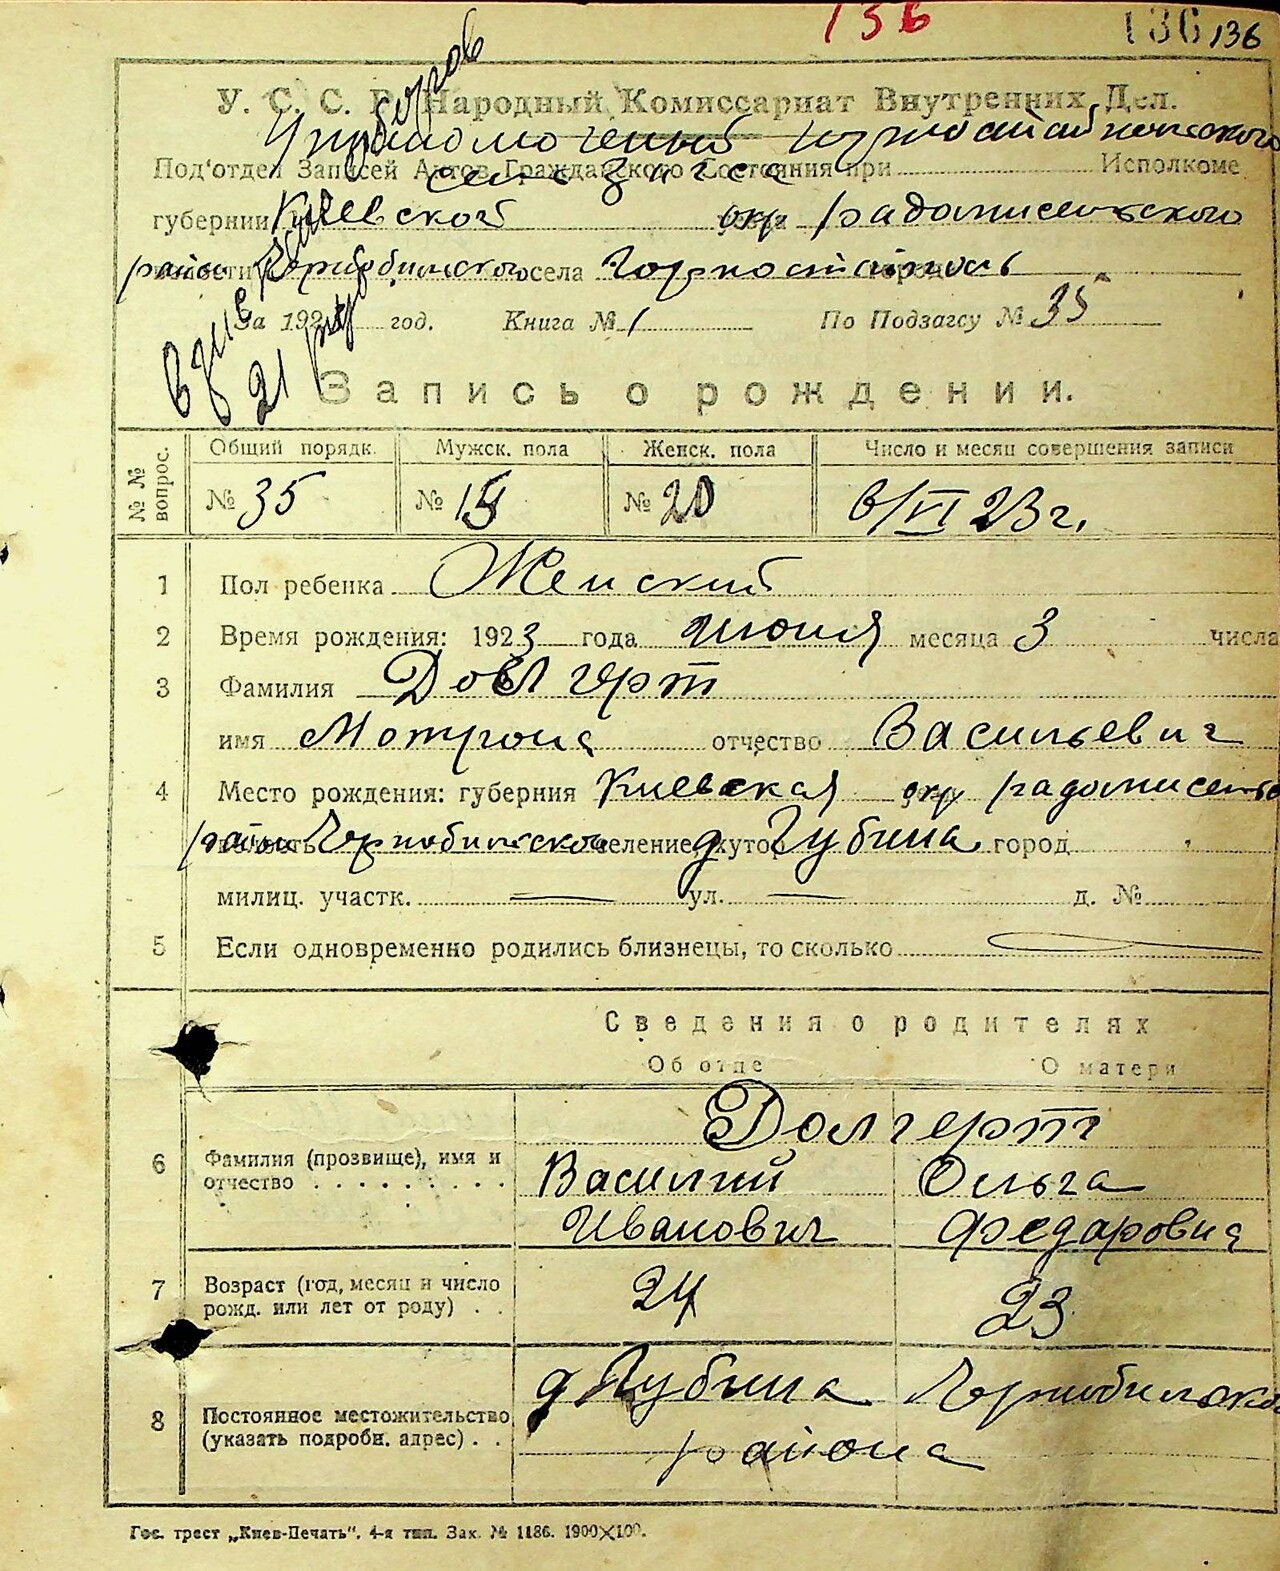 136 136 136
У. С. С. Р. Народный Комиссариат Внутренних Дел.
Под'отдел Записей Актов Гражданского Состояния при Исполкоме
загса
губернии Киевской окр радомисельского
района Чорнобильского села Горностайполь
За 192 год. Книга № 1 По Подзагсу № 35
Запись о рождении.
№№ вопрос. Общий порядк. Мужск. пола Женск. пола Число и месяц совершения записи
№ 35 № 15 № 20 6/VI 23 г.
1 Пол ребенка Женский
2 Время рождения: 1923 года июня месяца 3 числа
3 Фамилия Довгерт
имя Мотрона отчество Васильевна
4 Место рождения: губерния Киевская окр радомисельс
район Чорнобильского селение, хутор д Губина город
милиц. участк. — ул. — д. №
5 Если одновременно родились близнецы, то сколько —
Сведения о родителях
Об отце О матери
Долгерт
6 Фамилия (прозвище), имя и отчество Василий Ольга
Иванович Федаровна
7 Возраст (год, месяц и число рожд. или лет от роду) 24 23
8 Постоянное местожительство (указать подробн. адрес) д Губина Чорнобильского
района
Гос. трест „Киев-Печать“. 4-я тип. Зак. № 1186. 1900×100.